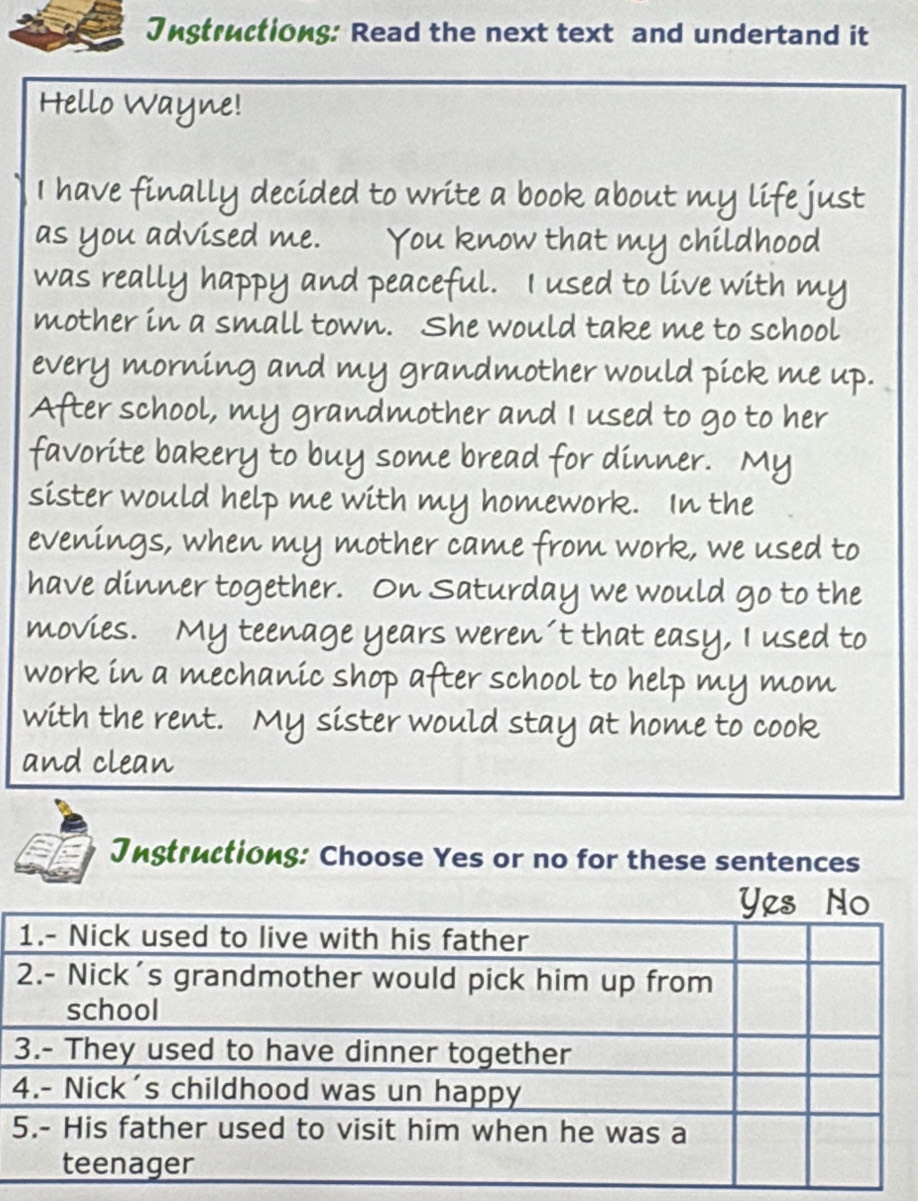 Instructions: Read the next text and undertand it
Hello Wayne!
I have finally decided to write a book about my life just
as you advised me. You know that my childhood
was really happy and peaceful. I used to live with my
mother in a small town. She would take me to school
every morning and my grandmother would pick me up.
After school, my grandmother and I used to go to her
favorite bakery to buy some bread for dinner. My
sister would help me with my homework. In the
evenings, when my mother came from work, we used to
have dinner together. On Saturday we would go to the
movies. My teenage years weren´t that easy, I used to
work in a mechanic shop after school to help my mom
with the rent. My sister would stay at home to cook
and clean
Instructions: Choose Yes or no for these sentences
Yes No
1.- Nick used to live with his father
2.- Nick´s grandmother would pick him up from
school
3.- They used to have dinner together
4.- Nick´s childhood was un happy
5.- His father used to visit him when he was a
teenager